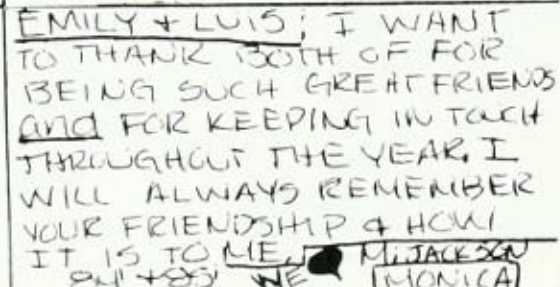 EMILY + LUIS; I WANT
TO THANK BOTH OF FOR
BEING SUCH GREAT FRIENDS
and FOR KEEPING IN TOUCH
THROUGHOUT THE YEAR. I
WILL ALWAYS REMEMBER
YOUR FRIENDSHIP & HOW
IT IS TO ME. M. JACKSON
84' + 85' WE MONICA